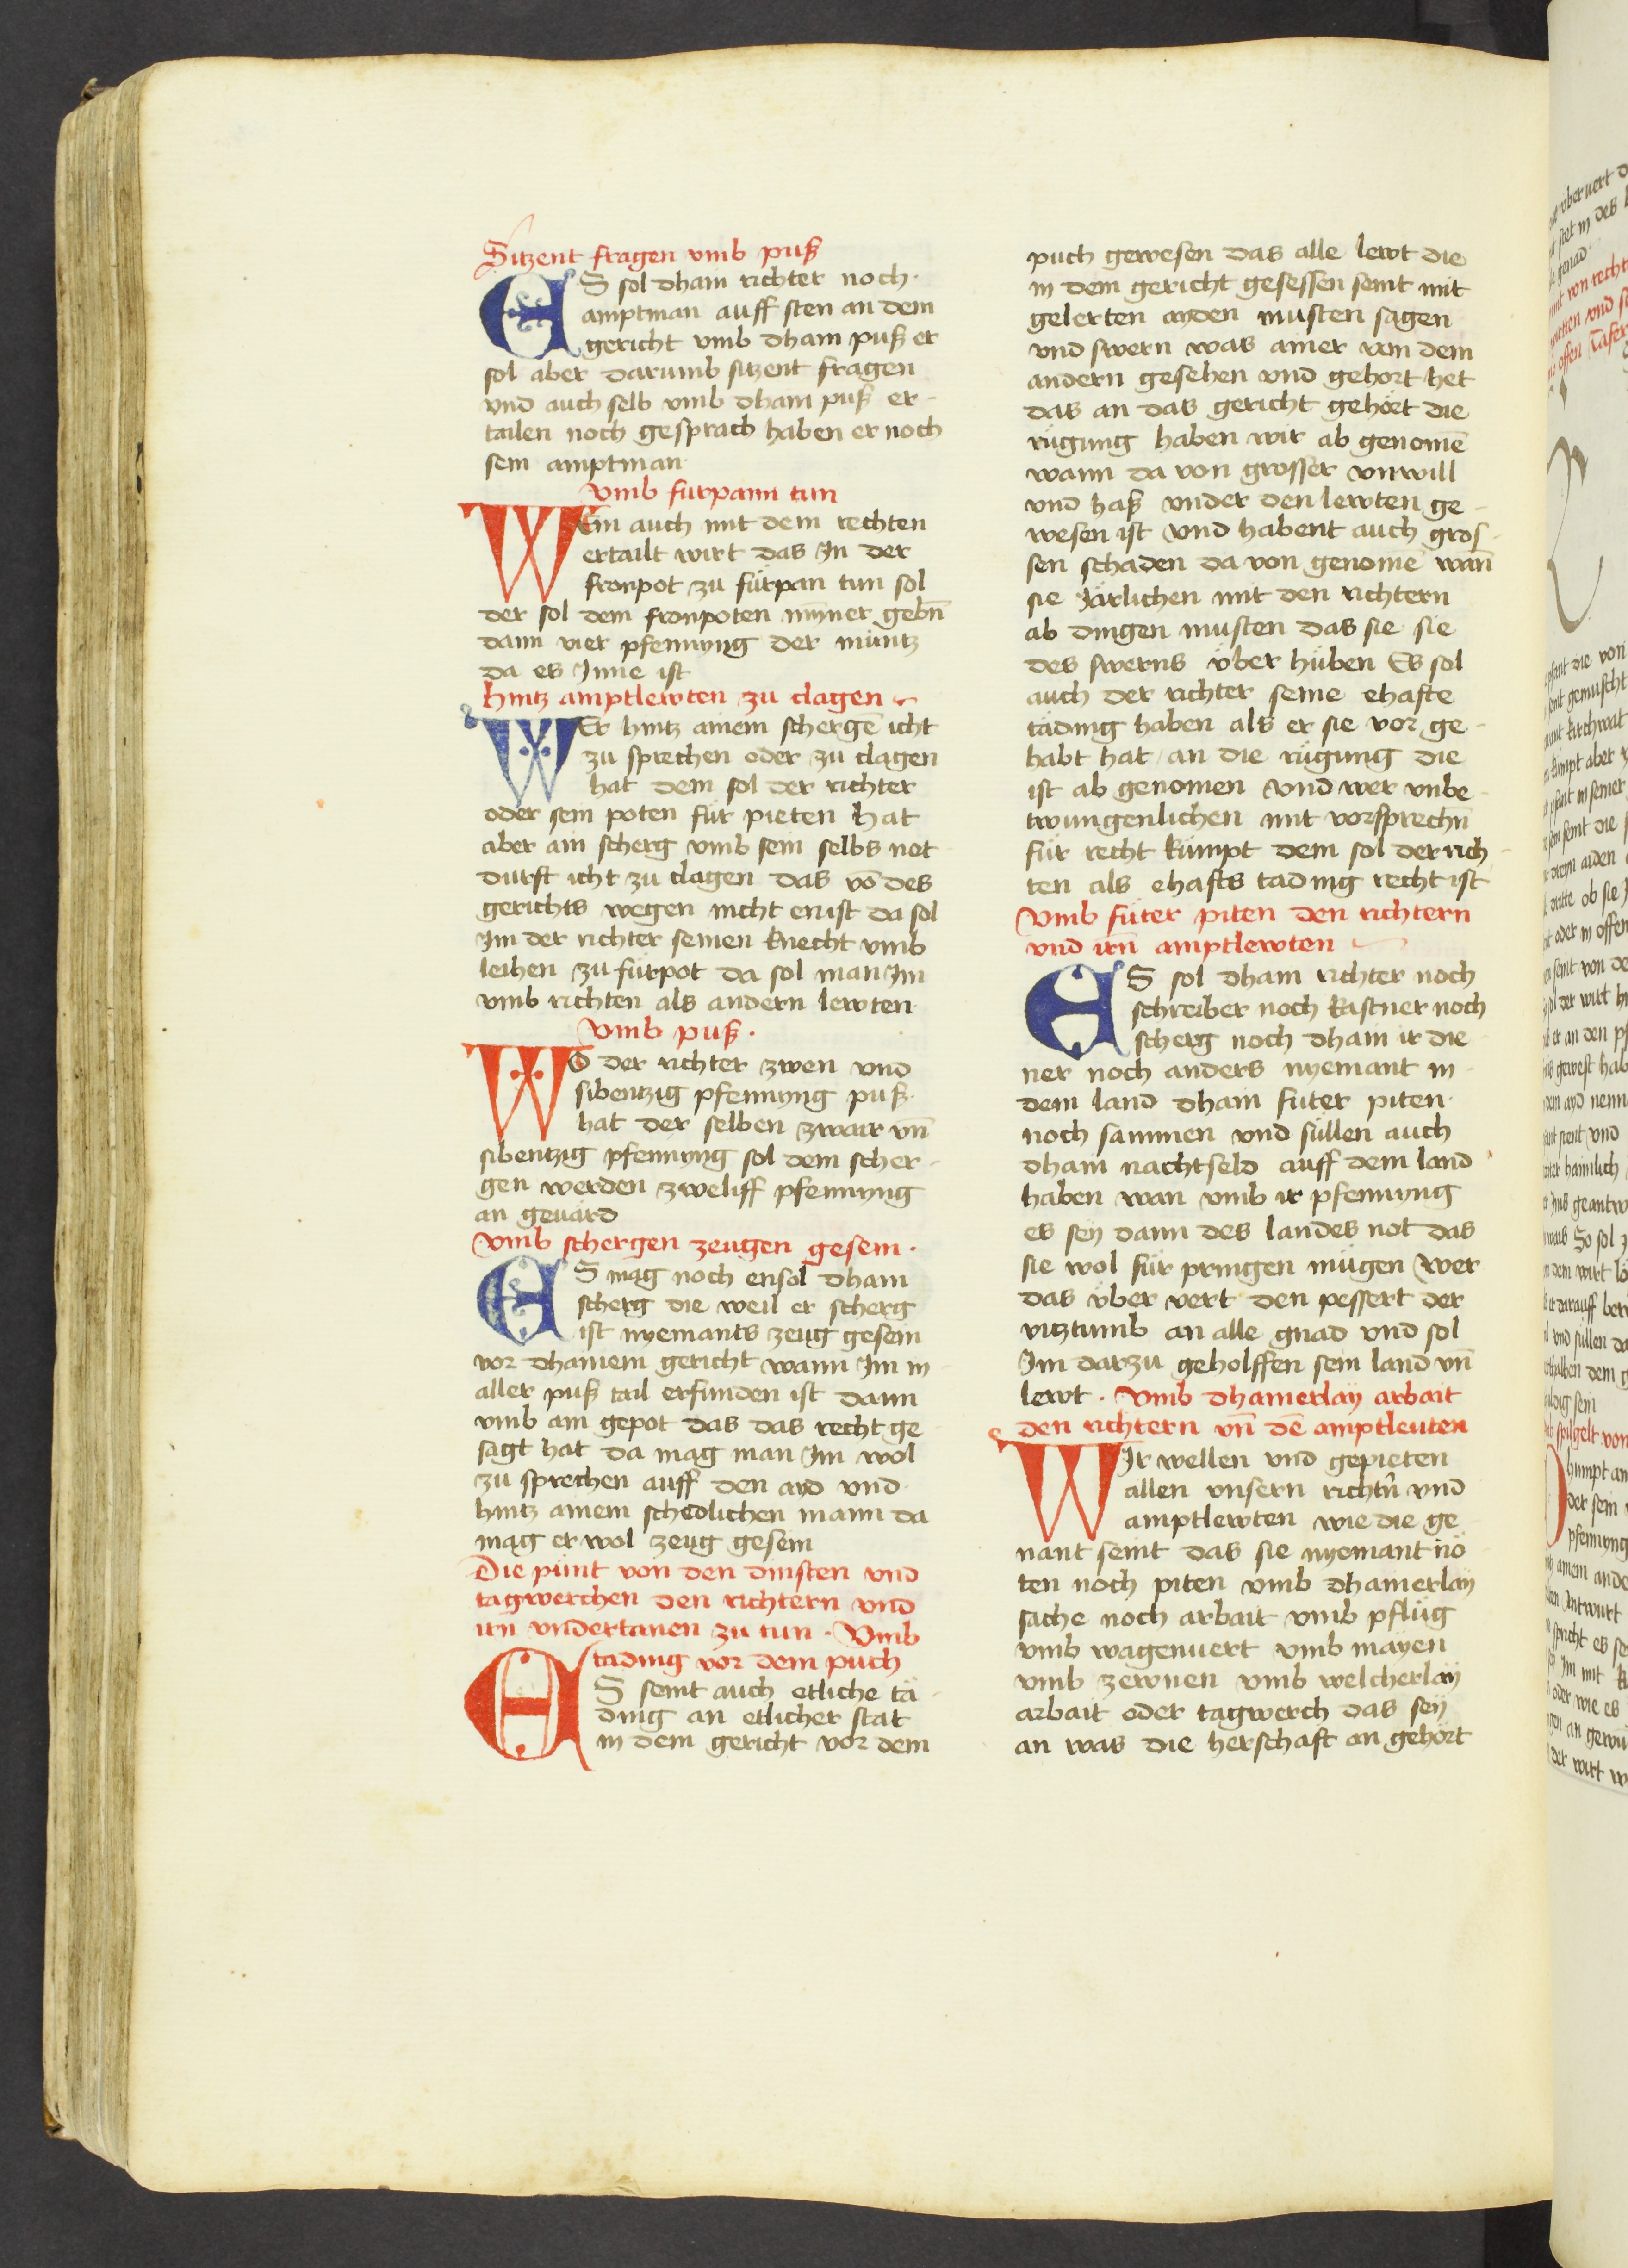 Sitzent fragen vmb puß
ES sol dhain richter noch
amptman auff sten an dem
gericht vmb dhain puß er
sol aber darumb sitzent fragen
vnd auch selb vmb dhain puß er-
tailen noch gesprach haben er noch
sein amptman
Vmb fürpann tun
WEm auch mit dem rechten
ertailt wirt das In der
fronpot zu fürpan tun sol
der sol dem fronpoten nymer gebn̄
dann vier pfennyng der müntz
da es Inne ist
hintz amptlewten zu clagen
WEr hintz ainem schergē icht
zu sprechen oder zu clagen
hat dem sol der richter
oder sein poten für pieten hat
aber ain scherg vmb sein selbs not-
durft icht zu clagen das vō des
gerichts wegen nicht enist da sol
Im der richter seinen knecht vmb
leihen zu fürpot da sol man Im
vmb richten als andern lewten
Vmb puß.
WO der richter zwen vnd
sibentzig pfennyng puß
hat der selben zwair vn̄
sibentzig pfennyng sol dem scher-
gen werden zweliff pfennyng
an geuärd
Vmb schergen zeugen gesein.
ES mag noch ensol dhain
scherg die weil er scherg
ist nyemants zeug gesein
vor dhainem gericht wann Im in
aller puß tail erfunden ist dann
vmb ain gepot das das recht ge-
sagt hat da mag man Im wol
zu sprechen auff den ayd vnd
hintz ainem schedlichen mann da
mag er wol zeug gesein
Die pünt von den dinsten vnd
tagwerchen den richtern vnd
irn vndertanen zu tun. Vmb
tading vor dem puch
ES seint auch etliche tä-
ding an etlicher stat
in dem gericht vor dem
puch gewesen das alle lewt die
in dem gericht gesessen seint mit
gelerten ayden musten sagen
vnd swern was ainer von dem
andern gesehen vnd gehort het
das an das gericht gehöet die
rügung haben wir ab genomē
wann da von grosser vnwill
vnd haß vnder den lewten ge-
wesen ist vnd habent auch gros-
sen schaden da von genomē wan̄
sie Järlichen mit den richtern
ab dingen musten das sie sie
des swerns über hüben Es sol
auch der richter seine ehafte
täding haben als er sie vor ge-
habt hat an die rügung die
ist ab genomen vnd wer vnbe-
twungenlichen mit vorsprechn̄
für recht kümpt dem sol der rich-
ten als ehafts tading recht ist
Vmb füter piten den richtern
vnd irn̄ amptlewten
ES sol dhain richter noch
schreiber noch kastner noch
scherg noch dhain ir die-
ner noch anders nyemant in
dem land dhain füter piten
noch sammen vnd süllen auch
dhain nachtseld auff dem land
haben wan vmb ir pfennyng
es sey dann des landes not das
sie wol für pringen mügen Wer
das über vert den pessert der
vitztumb an alle gnad vnd sol
Im darzu geholffen sein land vn̄
lewt. Vmb dhainerlaÿ arbait
den richtern vn̄ dē amptleuten
WIr wellen vnd gepieten
allen vnsern richtn̄ vnd
amptlewten wie die ge-
nant seint das sie nyemant nö-
ten noch piten vmb dhainerlay
sache noch arbait vmb pflüg
vmb wagenuert vmb mäyen
vmb zewnen vmb welcherlaÿ
arbait oder tagwerch das seÿ
an was die herschaft an gehört